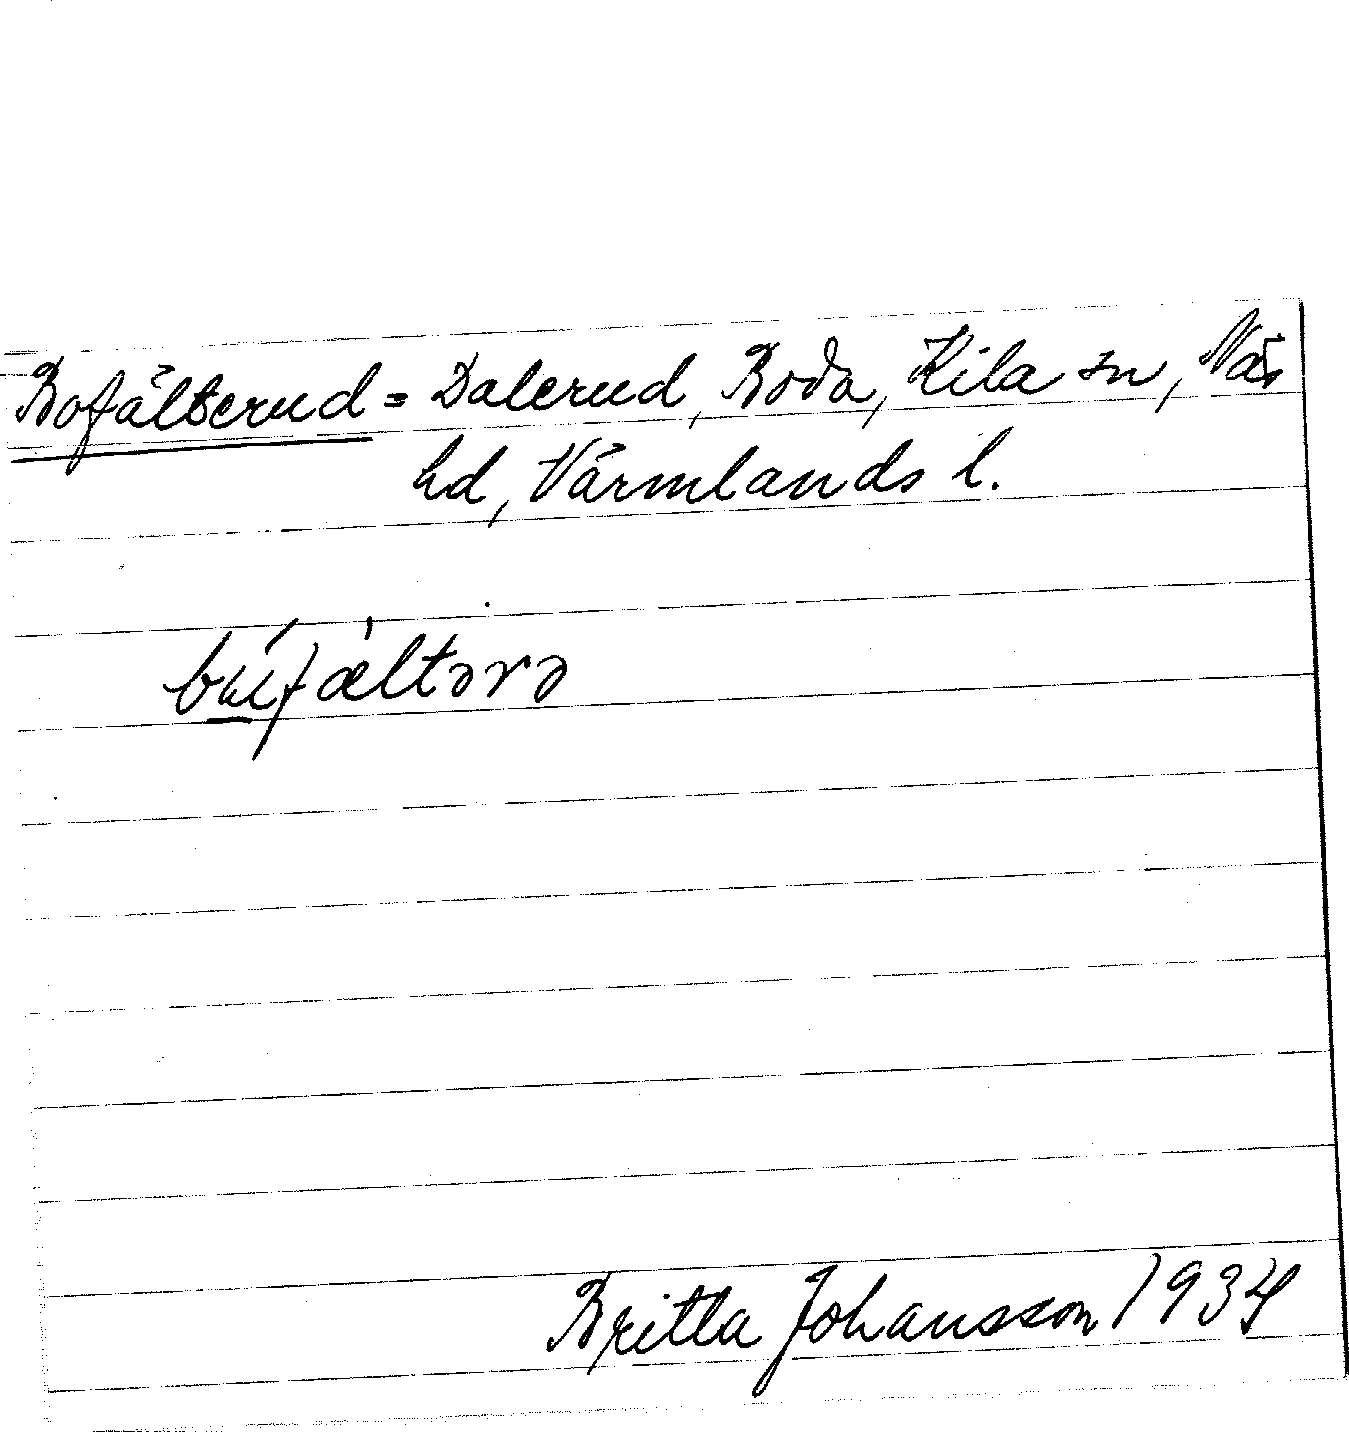 Bofälterud = Dalerud, Boda, Kila sn, Näs
hd, Värmlands l.
bú̲fæ̀ltərə
Britta Johansson 1934